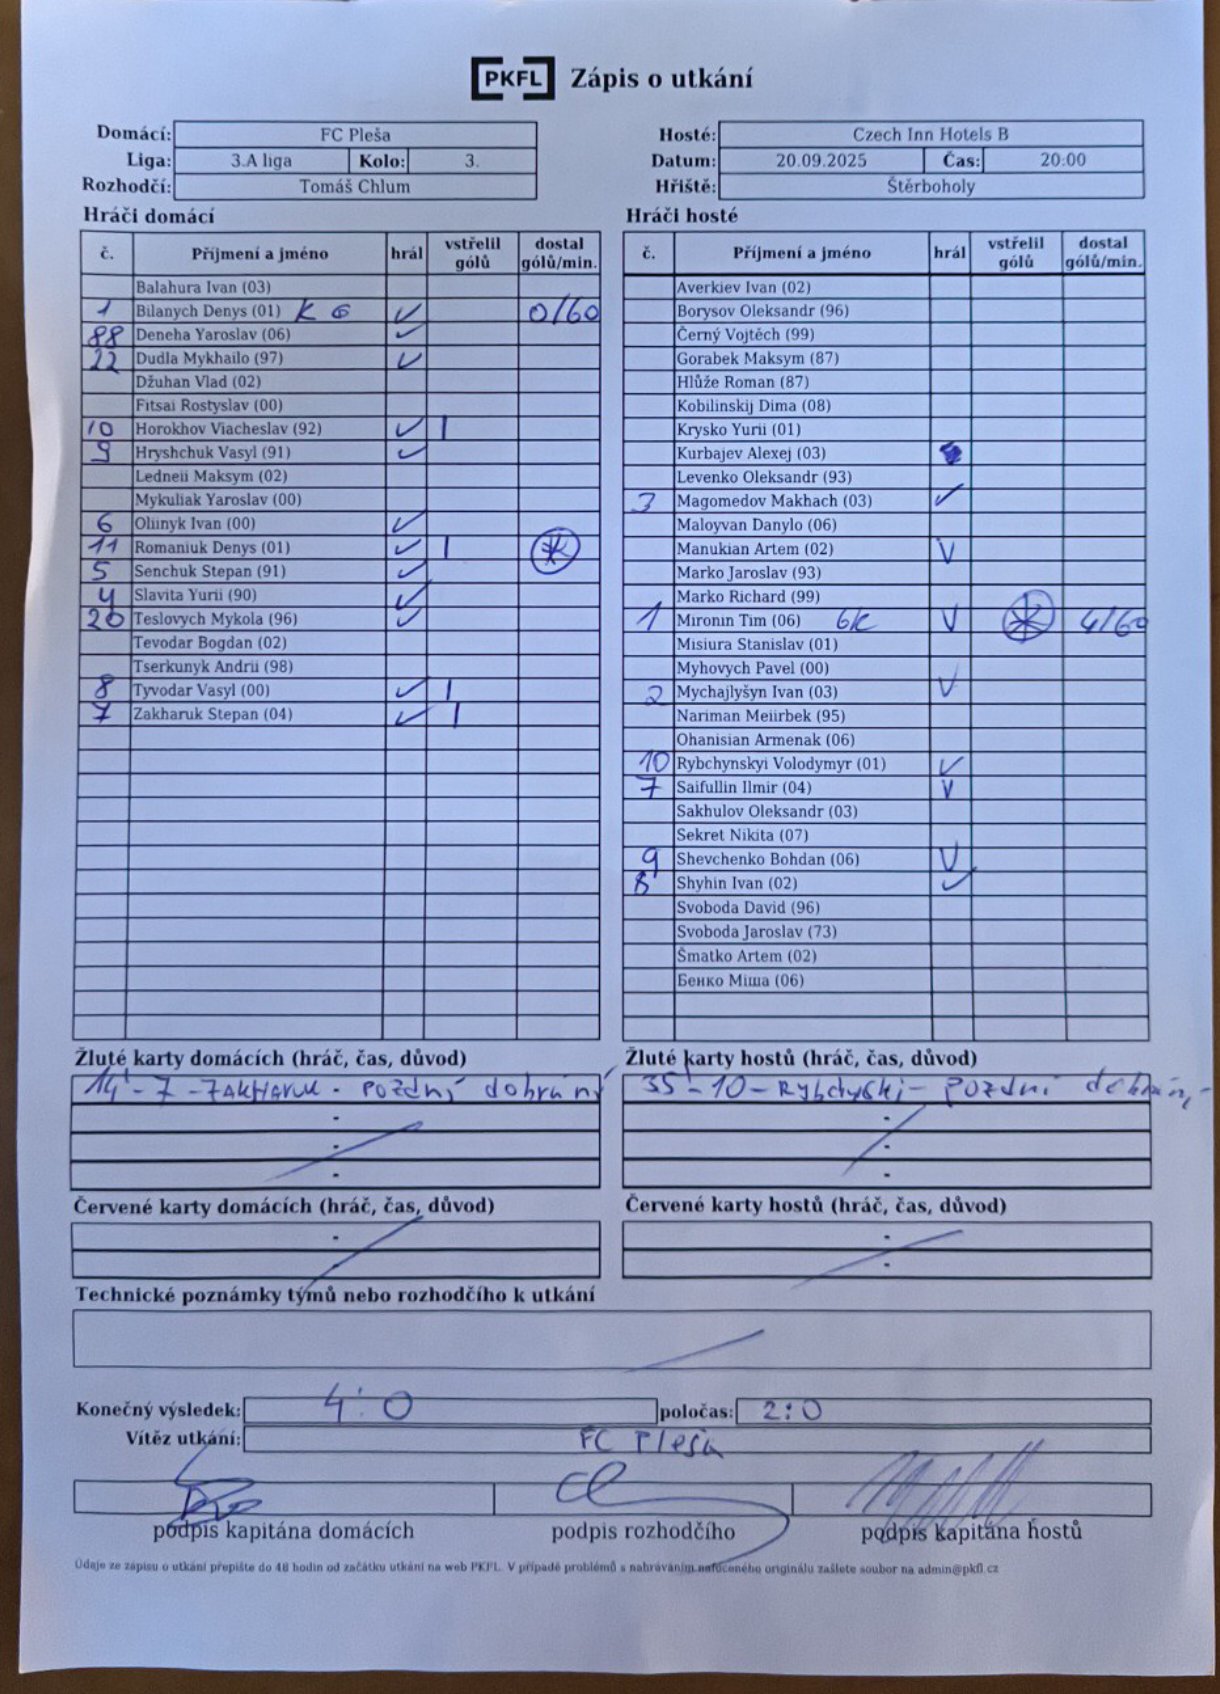 PKFL Zápis o utkání
Domácí: FC Pleša
Liga: 3.A liga Kolo: 3.
Rozhodčí: Tomáš Chlum
Hosté: Czech Inn Hotels B
Datum: 20.09.2025 Čas: 20:00
Hřiště: Štěrboholy
Hráči domácí
č. Příjmení a jméno hrál vstřelil gólů dostal gólů/min.
Balahura Ivan (03)
1 Bilanych Denys (01) K G ✓ 0/60
88 Deneha Yaroslav (06) ✓
22 Dudla Mykhailo (97) ✓
Džuhan Vlad (02)
Fitsai Rostyslav (00)
10 Horokhov Viacheslav (92) ✓ |
9 Hryshchuk Vasyl (91) ✓
Ledneii Maksym (02)
Mykuliak Yaroslav (00)
6 Oliinyk Ivan (00) ✓
11 Romaniuk Denys (01) ✓ |
5 Senchuk Stepan (91) ✓
4 Slavita Yurii (90) ✓
20 Teslovych Mykola (96) ✓
Tevodar Bogdan (02)
Tserkunyk Andrii (98)
8 Tyvodar Vasyl (00) ✓ |
7 Zakharuk Stepan (04) ✓ |
Hráči hosté
č. Příjmení a jméno hrál vstřelil gólů dostal gólů/min.
Averkiev Ivan (02)
Borysov Oleksandr (96)
Černý Vojtěch (99)
Gorabek Maksym (87)
Hlůže Roman (87)
Kobilinskij Dima (08)
Krysko Yurii (01)
Kurbajev Alexej (03)
Levenko Oleksandr (93)
3 Magomedov Makhach (03) ✓
Maloyvan Danylo (06)
Manukian Artem (02) V
Marko Jaroslav (93)
Marko Richard (99)
1 Mironin Tim (06) GK V 4/60
Misiura Stanislav (01)
Myhovych Pavel (00)
2 Mychajlyšyn Ivan (03) V
Nariman Meiirbek (95)
Ohanisian Armenak (06)
10 Rybchynskyi Volodymyr (01) ✓
7 Saifullin Ilmir (04) V
Sakhulov Oleksandr (03)
Sekret Nikita (07)
9 Shevchenko Bohdan (06) V
8 Shyhin Ivan (02) ✓
Svoboda David (96)
Svoboda Jaroslav (73)
Šmatko Artem (02)
Бенко Міша (06)
Žluté karty domácích (hráč, čas, důvod)
14' - 7 - ZAKHARUK - pozdní dobrání
Žluté karty hostů (hráč, čas, důvod)
35' - 10 - Rybchyski - pozdní dobrání
Červené karty domácích (hráč, čas, důvod)
Červené karty hostů (hráč, čas, důvod)
Technické poznámky týmů nebo rozhodčího k utkání
Konečný výsledek: 4:0 poločas: 2:0
Vítěz utkání: FC Pleša
podpis kapitána domácích podpis rozhodčího podpis kapitána hostů
Údaje ze zápisu o utkání přepište do 48 hodin od začátku utkání na web PKFL. V případě problémů s nahráváním nafoceného originálu zašlete soubor na admin@pkfl.cz